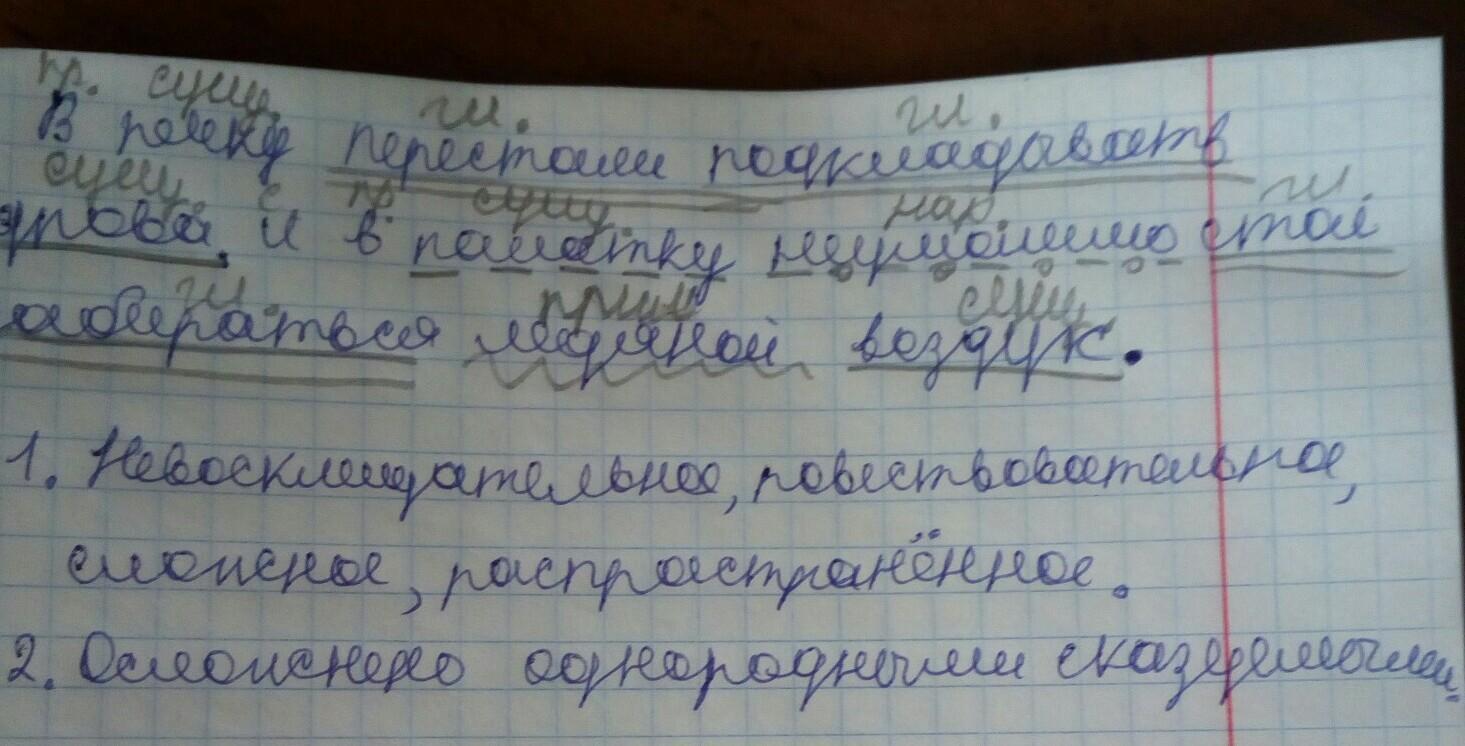 пр. сущ. гл. гл.
В печку перестали подкладывать
сущ. с. пр. сущ. нар. гл.
дрова, и в палатку неумолимо стал
гл. прил. сущ.
забираться ледяной воздух.
1. Невосклицательное, повествовательное,
сложное, распространённое.
2. Осложнено однородными сказуемыми.